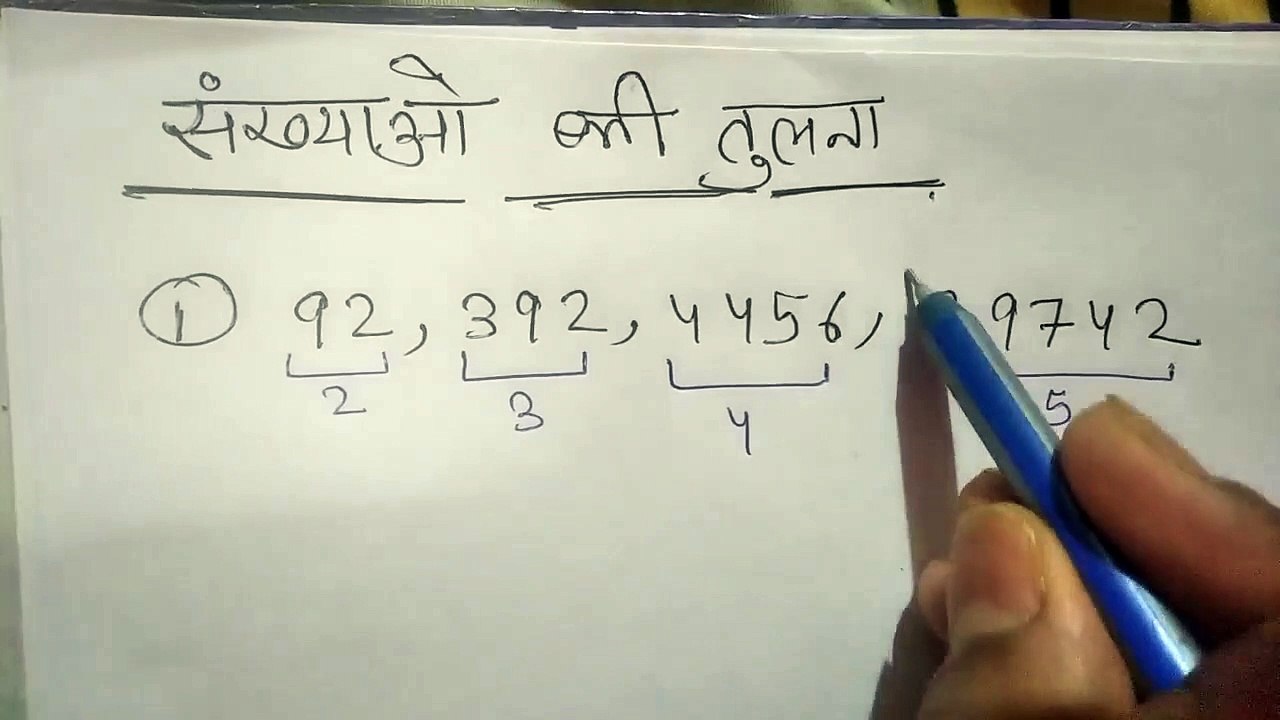 संख्याओ की तुलना
① 92, 392, 4456, 9742
2 3 4 5